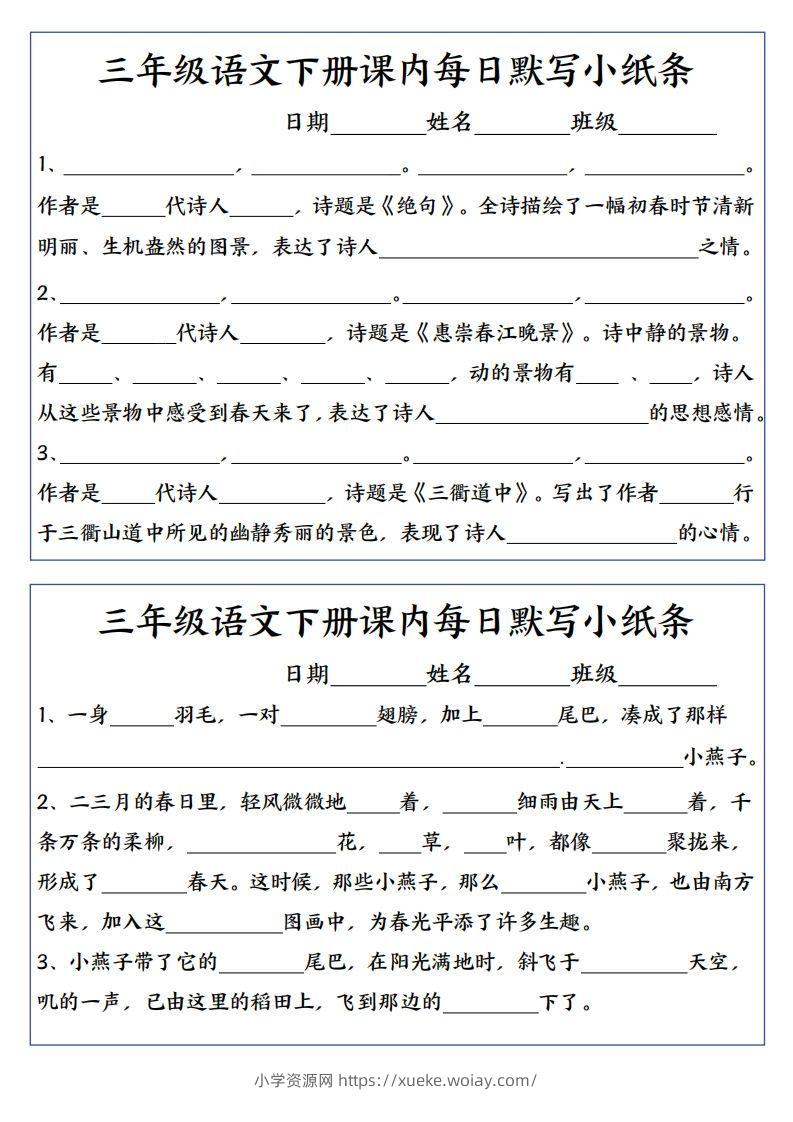 三年级语文下册课内每日默写小纸条
日期________姓名________班级________
1、________________，______________。______________，________________。
作者是______代诗人______，诗题是《绝句》。全诗描绘了一幅初春时节清新
明丽、生机盎然的图景，表达了诗人______________________________之情。
2、_______________，_______________。________________，_______________。
作者是_______代诗人________，诗题是《惠崇春江晚景》。诗中静的景物。
有_____、______、______、______、______，动的景物有____ 、____，诗人
从这些景物中感受到春天来了，表达了诗人____________________的思想感情。
3、_______________，________________。_______________，_______________。
作者是_____代诗人__________，诗题是《三衢道中》。写出了作者_______行
于三衢山道中所见的幽静秀丽的景色，表现了诗人________________的心情。
三年级语文下册课内每日默写小纸条
日期________姓名________班级________
1、一身______羽毛，一对_________翅膀，加上_______尾巴，凑成了那样
_________________________________________________.___________小燕子。
2、二三月的春日里，轻风微微地_____着，_______细雨由天上______着，千
条万条的柔柳，______________花，____草，____叶，都像_______聚拢来，
形成了________春天。这时候，那些小燕子，那么________小燕子，也由南方
飞来，加入这___________图画中，为春光平添了许多生趣。
3、小燕子带了它的________尾巴，在阳光满地时，斜飞于__________天空，
叽的一声，已由这里的稻田上，飞到那边的_________下了。
小学资源网 https://xueke.woiay.com/